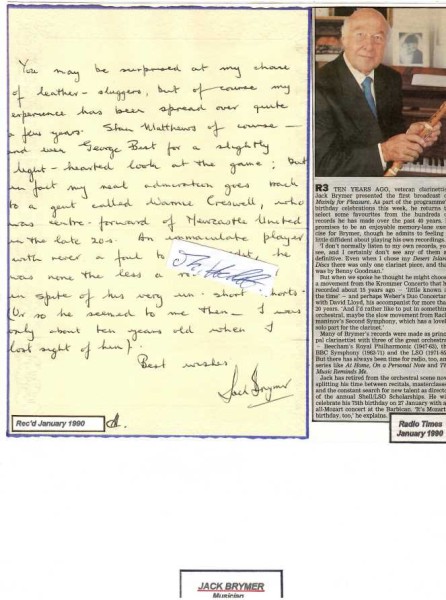 You may be surprised at my choice
of leather-sluggers, but of course my
experience has been spread over quite
a few years. Stan Matthews of course -
and even George Best for a slightly
light-hearted look at the game; but
in fact my real admiration goes back
to a gent called Warnie Creswell, who
was centre-forward of Newcastle United
in the late 20s. An immaculate player
with never a foul to
was none the less a
in spite of his very un-short shorts.
Or so he seemed to me then - I was
only about ten years old when I
lost sight of him!
Best wishes
Jack Brymer
Rec'd January 1990
R3 TEN YEARS AGO, veteran clarinettist
Jack Brymer presented the first broadcast
Mainly for Pleasure. As part of the programme's
birthday celebrations this week, he returns
select some favourites from the hundreds
records he has made over the past 40 years.
promises to be an enjoyable memory-lane exer-
cise for Brymer, though he admits to feeling
little diffident about playing his own recordings.
'I don't normally listen to my own records, yo
see, and I certainly don't see any of them
definitive. Even when I chose my Desert Island
Discs there was only one clarinet piece, and that
was by Benny Goodman.'
But when we spoke he thought he might choose
a movement from the Krommer Concerto that
recorded about 15 years ago – 'little known
the time' – and perhaps Weber's Duo Concertant
with David Lloyd, his accompanist for more than
30 years. 'And I'd rather like to put in something
orchestral, maybe the slow movement from Rach-
maninov's Second Symphony, which has a lovely
solo part for the clarinet.'
Many of Brymer's records were made as princi-
pal clarinettist with three of the great orchestras
– Beecham's Royal Philharmonic (1947-63), the
BBC Symphony (1963-71) and the LSO (1971-
But there has always been time for radio, too, and
series like At Home, On a Personal Note and Th
Music Reminds Me.
Jack has retired from the orchestral scene now
splitting his time between recitals, masterclasses
and the constant search for new talent as director
of the annual Shell/LSO Scholarships. He will
celebrate his 75th birthday on 27 January with a
all-Mozart concert at the Barbican. 'It's Mozart's
birthday, too,' he explains.
Radio Times
January 1990
JACK BRYMER
Musician